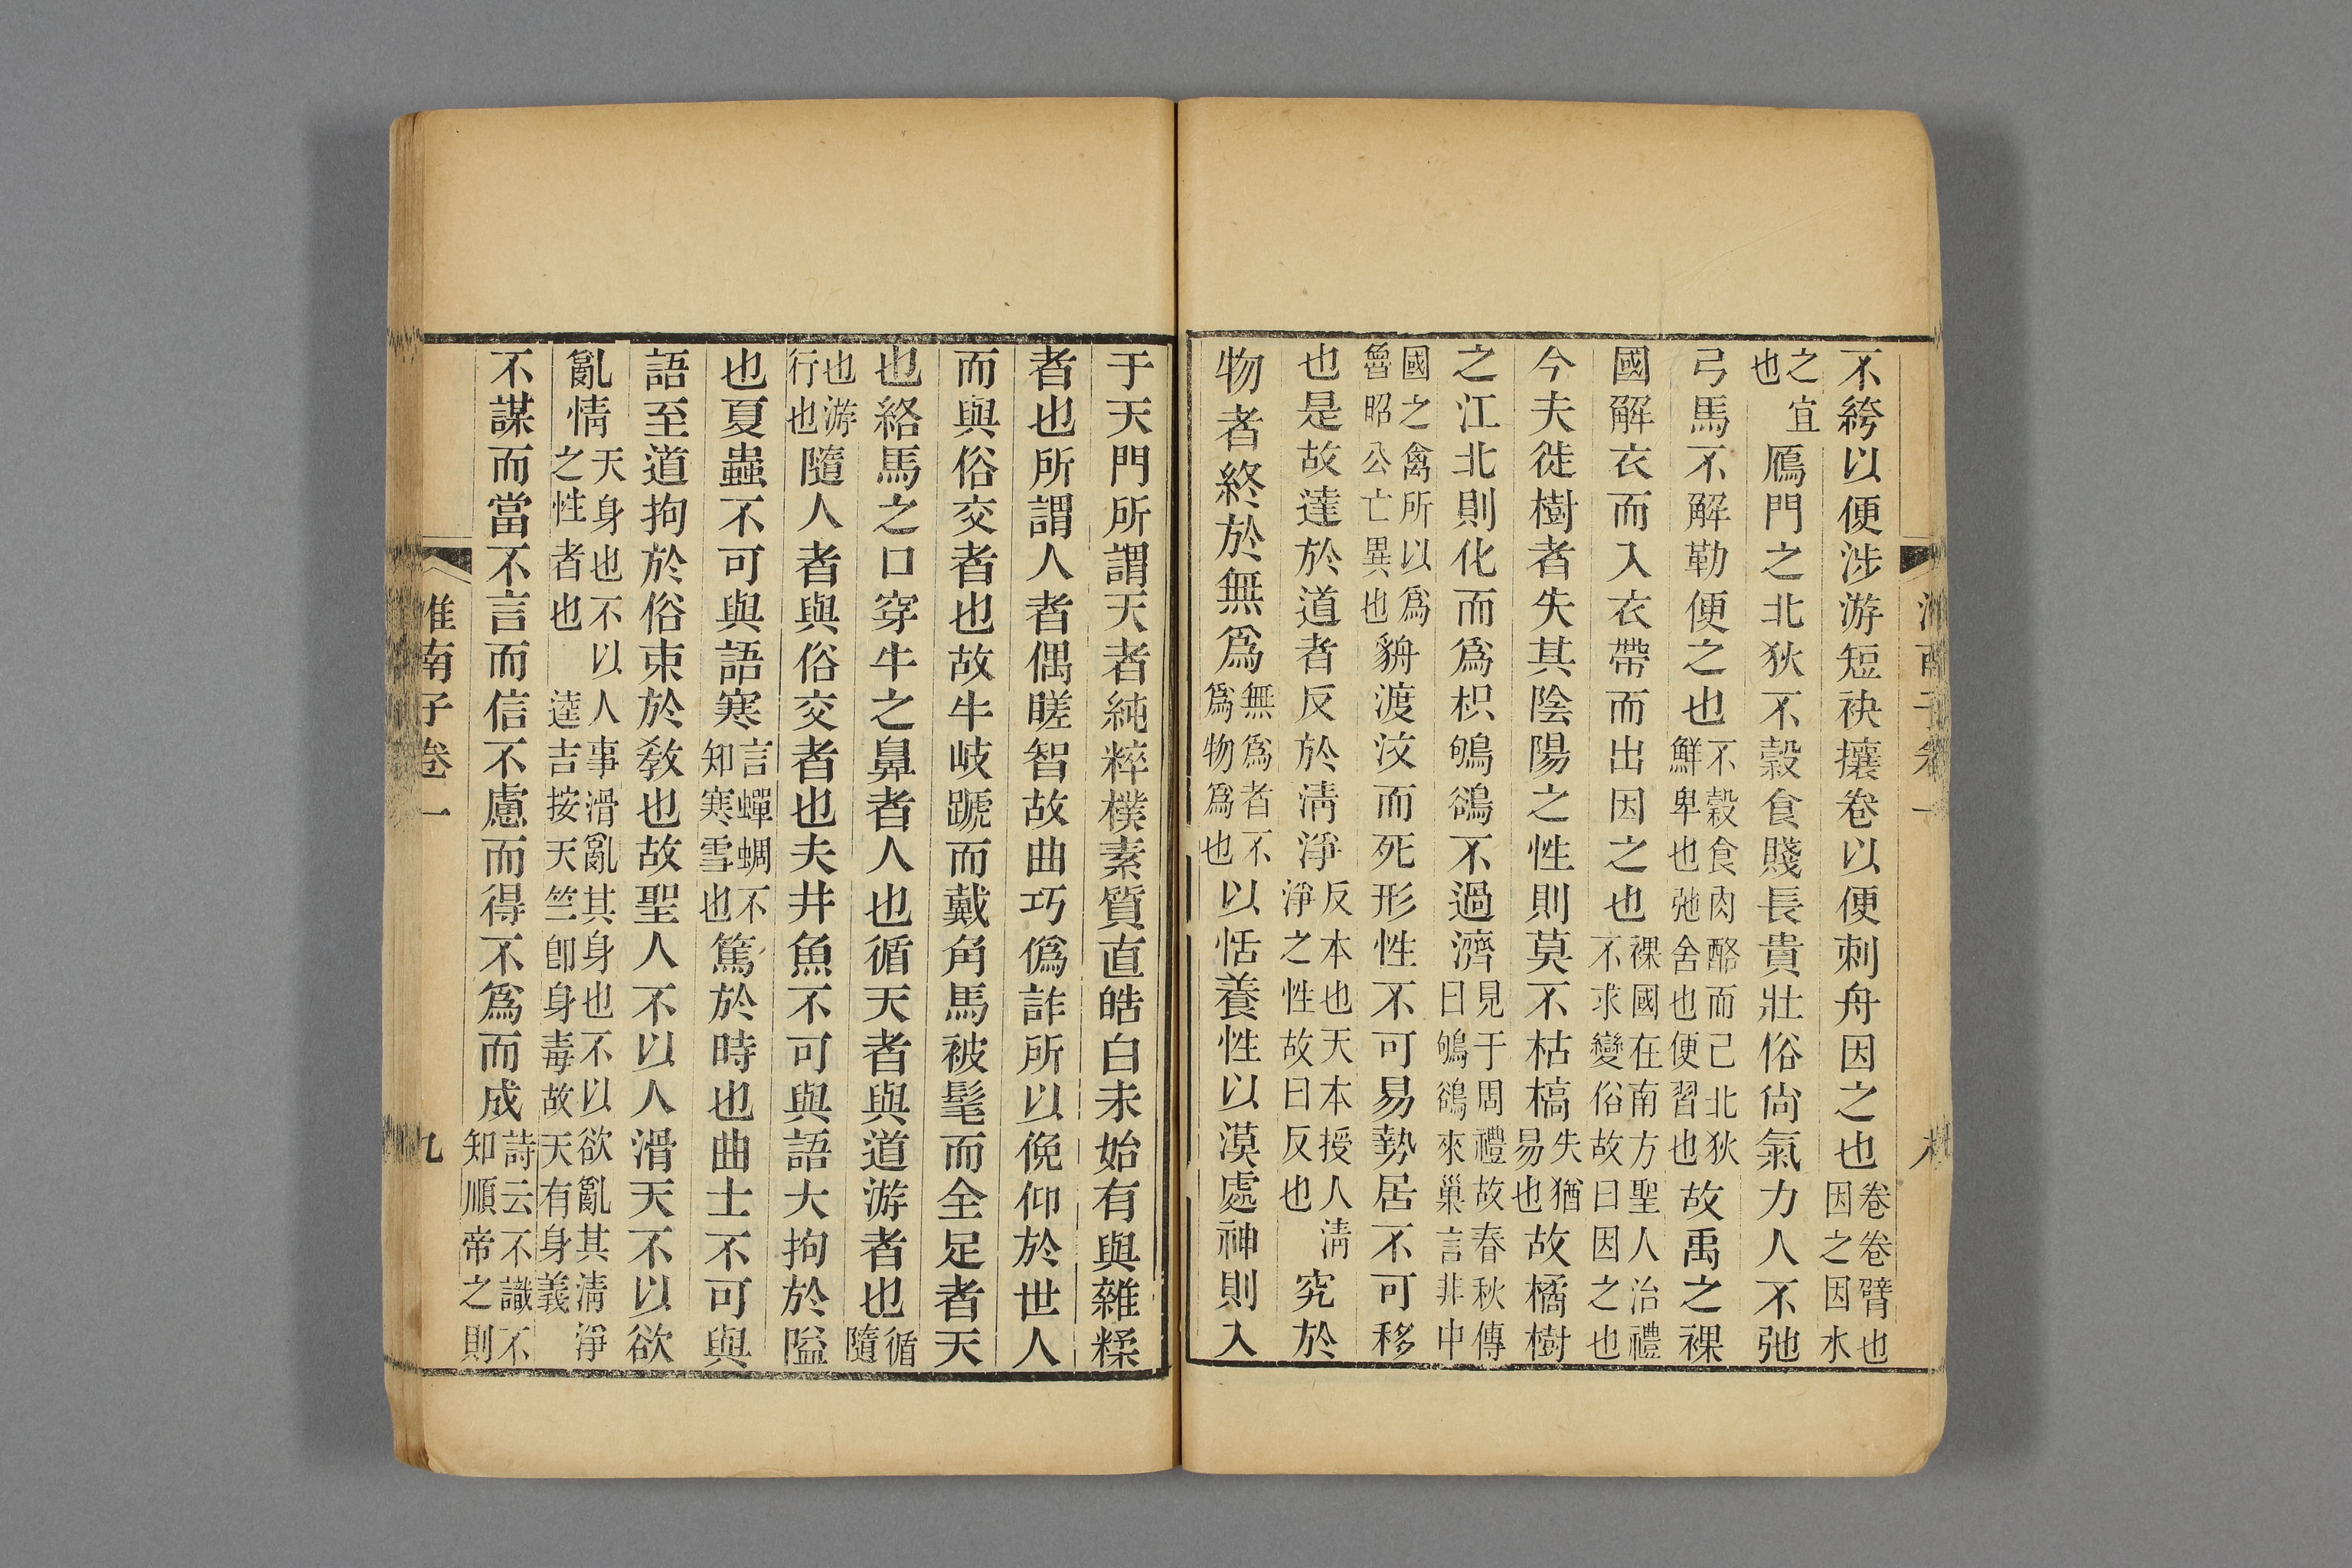 不絝以便涉游短袂攘卷以便刺舟因之也卷卷臂也因之因水
之宜也鴈門之北狄不穀食賤長貴壯俗尙氣力人不弛
弓馬不解勒便之也不穀食肉酪而已北狄鮮卑也弛舍也便習也故禹之裸
國解衣而入衣帶而出因之也裸國在南方聖人治禮不求變俗故曰因之也
今夫徙樹者失其陰陽之性則莫不枯槁失猶易也故橘樹
之江北則化而爲枳鴝鵒不過濟見于周禮故春秋傳曰鴝鵒來巢言非中
國之禽所以爲魯昭公亡異也貈渡汶而死形性不可易勢居不可移
也是故達於道者反於淸淨反本也天本授人淸淨之性故曰反也究於
物者終於無爲無爲者不爲物爲也以恬養性以漠處神則入
于天門所謂天者純粹樸素質直皓白未始有與雜糅
者也所謂人者偶䁟智故曲巧僞詐所以俛仰於世人
而與俗交者也故牛岐蹏而戴角馬被髦而全足者天
也絡馬之口穿牛之鼻者人也循天者與道游者也循隨
也游行也隨人者與俗交者也夫井魚不可與語大拘於隘
也夏蟲不可與語寒言蟬蜩不知寒雪也篤於時也曲士不可與
語至道拘於俗束於敎也故聖人不以人滑天不以欲
亂情天身也不以人事滑亂其身也不以欲亂其淸淨之性者也逵吉按天竺卽身毒故天有身義
不謀而當不言而信不慮而得不爲而成詩云不識不知順帝之則
淮南子卷一
九